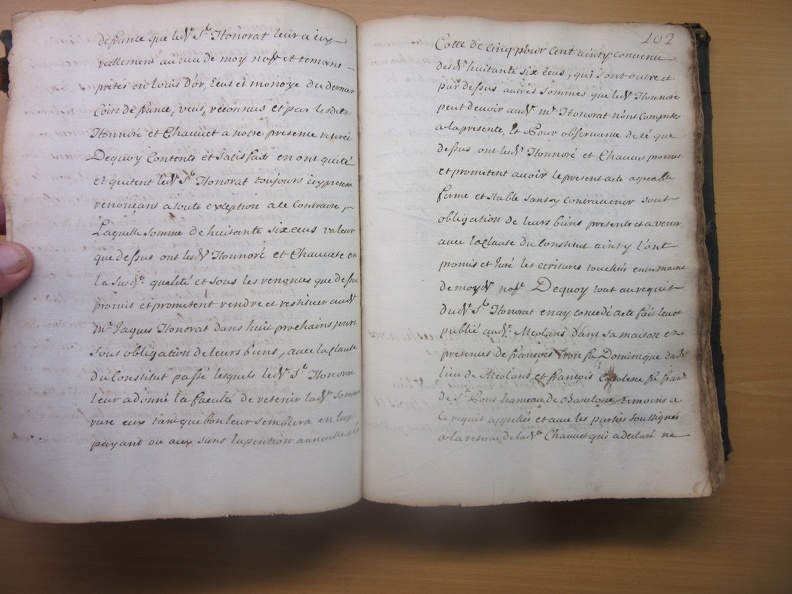 de france que led.t S.r Honorat leur a icy
réellement au veu de moy no.re et temoins
prétés en louis d'or, Ecus et monoye du dernier
Coin de france, veus, réconnus et par lesdits
Honnoré et Chauvet a notre présence retirés
Dequoy Contents et Satisfaits en ont quité
et quitent led.t S.r Honorat toujours icy present
renonçant a toute exception a le Contraire,
Laquelle Somme de huitante six ecus valeur
que dessus ont lesd.ts Honnoré et Chauvete en
la susd.e qualité et sous les renonces que dessus
promis et prometent rendre et restituer aud.t
m.re Jaques Honorat dans huit prochains jours
sous obligation de leurs biens, avec la clause
du Constitut passé lesquels led.t S.r Honorat
leur a donné la faculté de retenir lad.e Somme
rure eux tant que bon leur semblera en luy
payant ou aux siens la pention annuelle a la
102
Cotte de cinq pour cent ainsy convenue
desd.ts huitante six ecus, qui sont outre et
par dessus autres sommes que led.t Honnoré
peut devoir aud.t m.re Honorat non Comprises
a la presente, et Pour observance de ce que
dessus ont lesd.ts Honnoré et Chauvet promis
et prometent avoir le present acte agreable
ferme et stable sans y contrevenir sous
obligation de leurs biens presents et a venir
avec la clause du Constitut ainsy l'ont
promis et Juré les ecritures touchées en mains
de moyd.t no.re Dequoy tout au requis
dud.t S.r Honorat en ay concedé acte fait leu et
publié aud.t Meolans dans sa maison en
presence de françois feu Dominique dud.t
lieu de Meolans, et françois fu
de S.t Pons hameau de temoins a
ce requis appellés et avec les parties soussignés
a la reserve de lad.e Chauvet qui a declaré ne